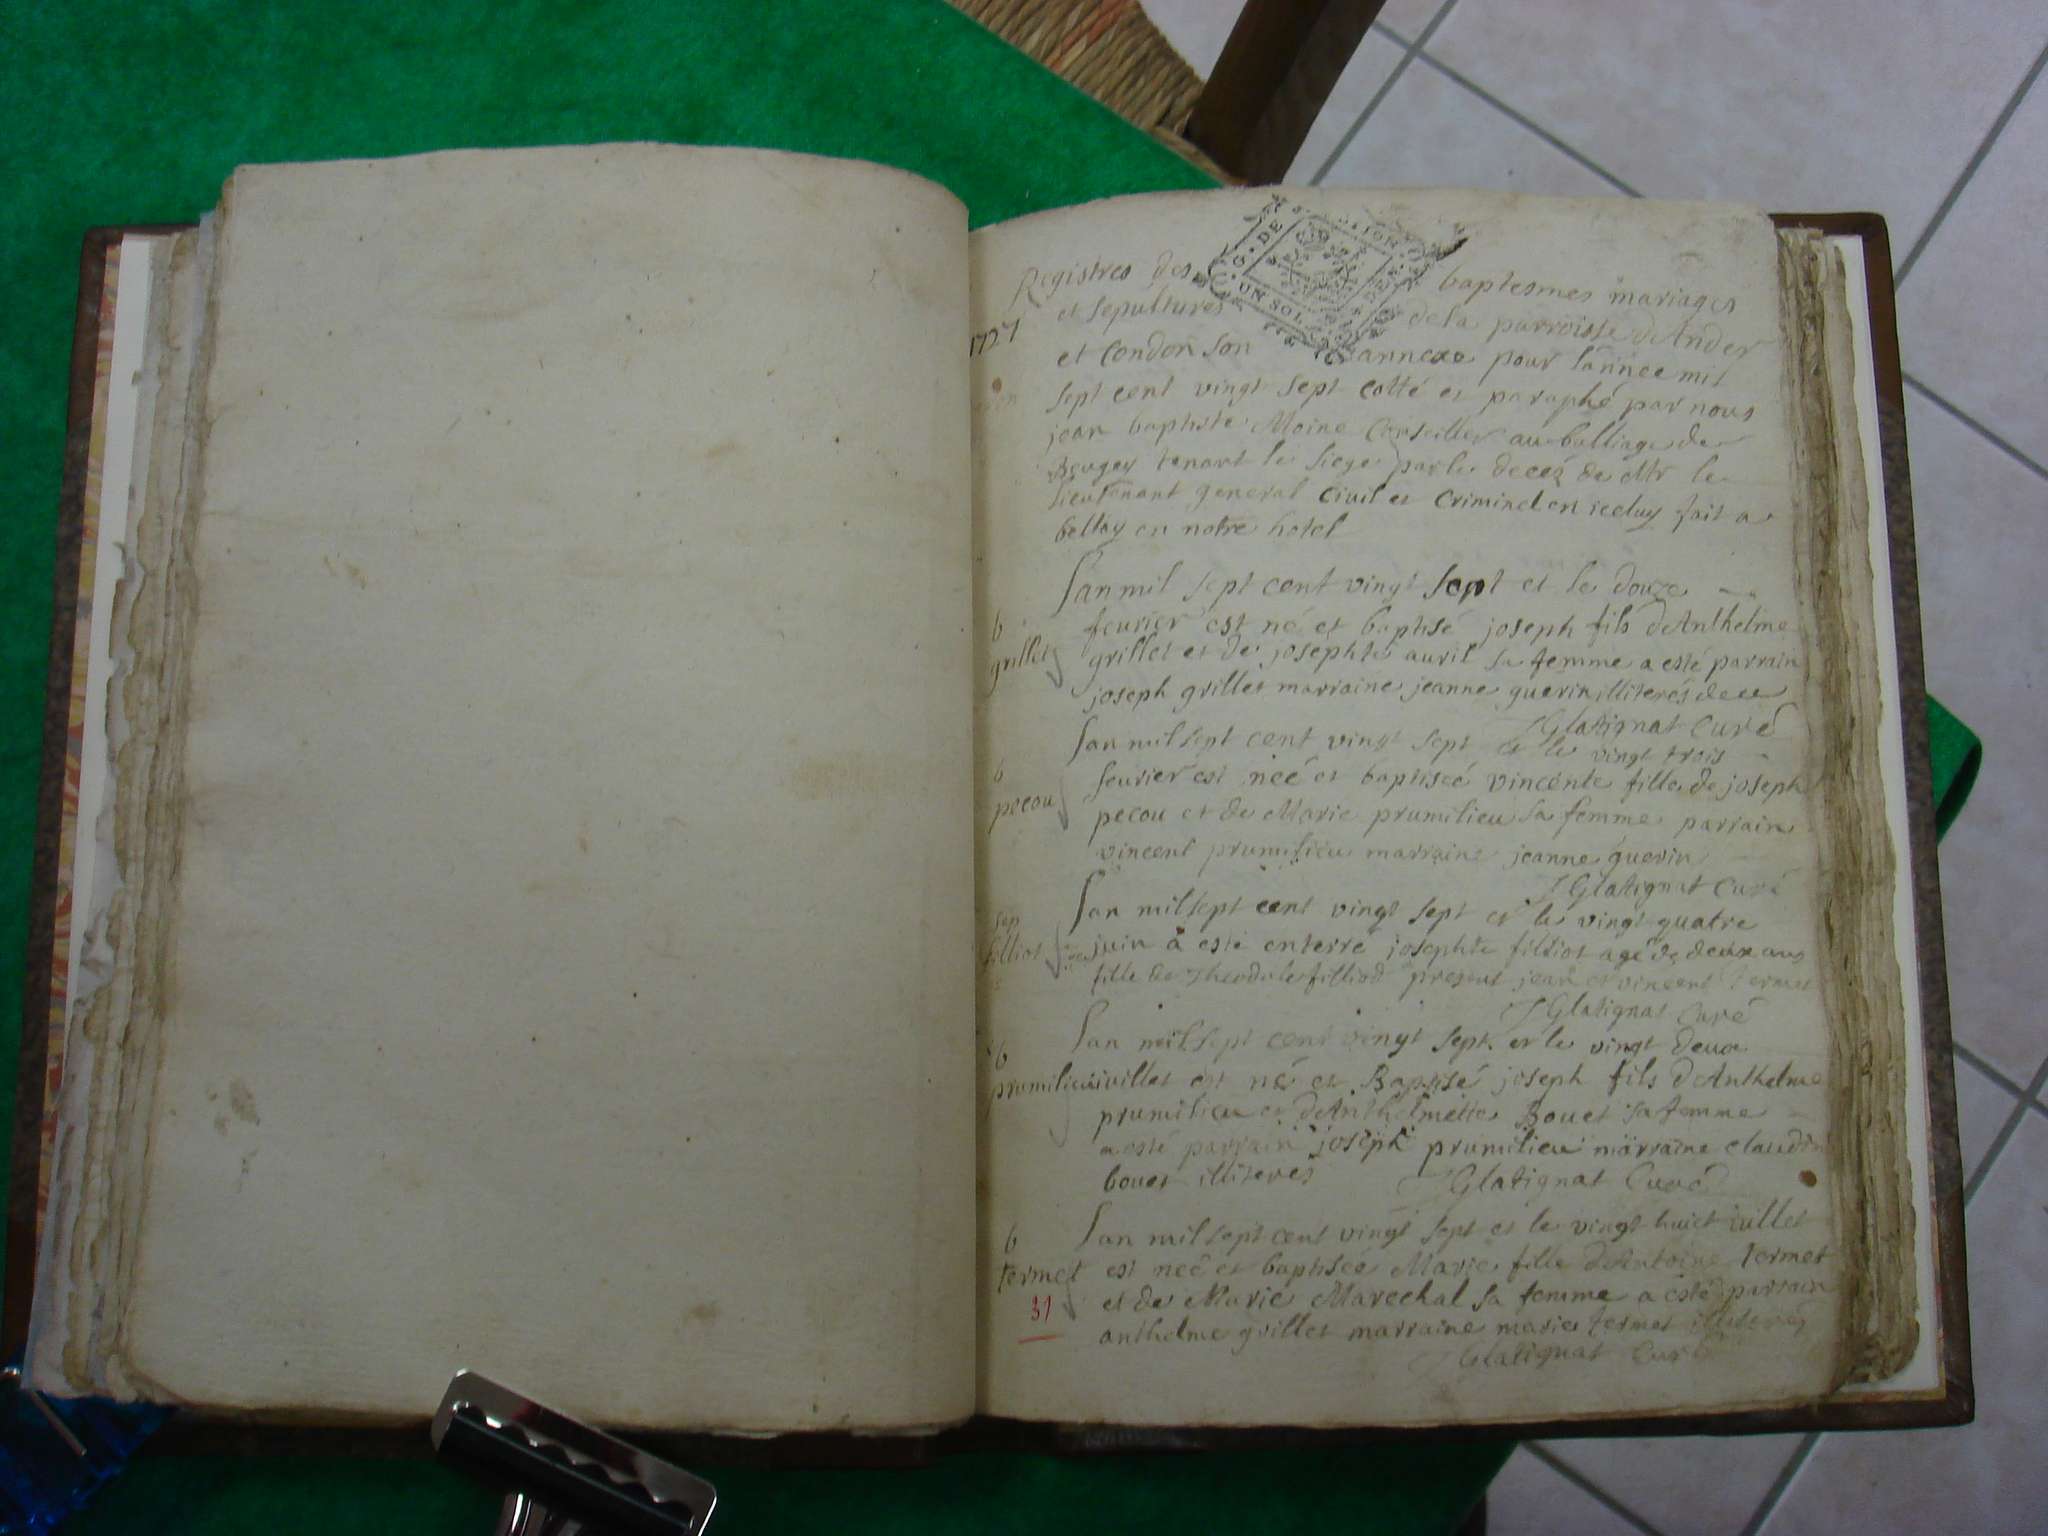 Registres des baptesmes mariages
et sepultures de la parroisse dAnder
1727
et Condon son annexe pour lannee mil
sept cent vingt sept cotté et paraphé par nous
jean baptiste Moine Conseiller au balliage de
Beugey tenant le siege par le decez de Mr le
lieutenant general Civil et Criminel en iceluy fait a
belley en notre hotel
G. DE
UN SOL
lan mil sept cent vingt sept et le douze
b
grillet
feurier est né et baptisé joseph fils dAnthelme
grillet et de josephte auril sa femme a esté parrain
joseph grillet marraine jeanne guerin illiterés de ce
JGlatignat Curé
lan mil sept cent vingt sept et le vingt trois
b
pecou
feurier est neé et baptiseé vincente fille de joseph
pecou et de Marie prumilieu sa femme parrain
vincent prumilieu marraine jeanne guerin
JGlatignat Curé
lan mil sept cent vingt sept et le vingt quatre
sep
filliot
juin a esté enterré josephte filliot agé de deux ans
fille de Theodule filliod present jean et vincent Termet
JGlatignat Curé
lan mil sept cent vingt sept et le vingt deux
b
prumilieu
iuillet est né et Baptisé joseph fils dAnthelme
prumilieu et dAnthelmette Bouet sa femme
a esté parrain joseph prumilieu marraine claudine
bouet illiterés JGlatignat Curé
lan mil sept cent vingt sept et le vingt huict iuillet
b
termet
31
est neé et baptiseé Marie fille dAntoine termet
et de Marie Marechal sa femme a esté parrain
anthelme grillet marraine marie termet illiterés
JGlatignat Curé